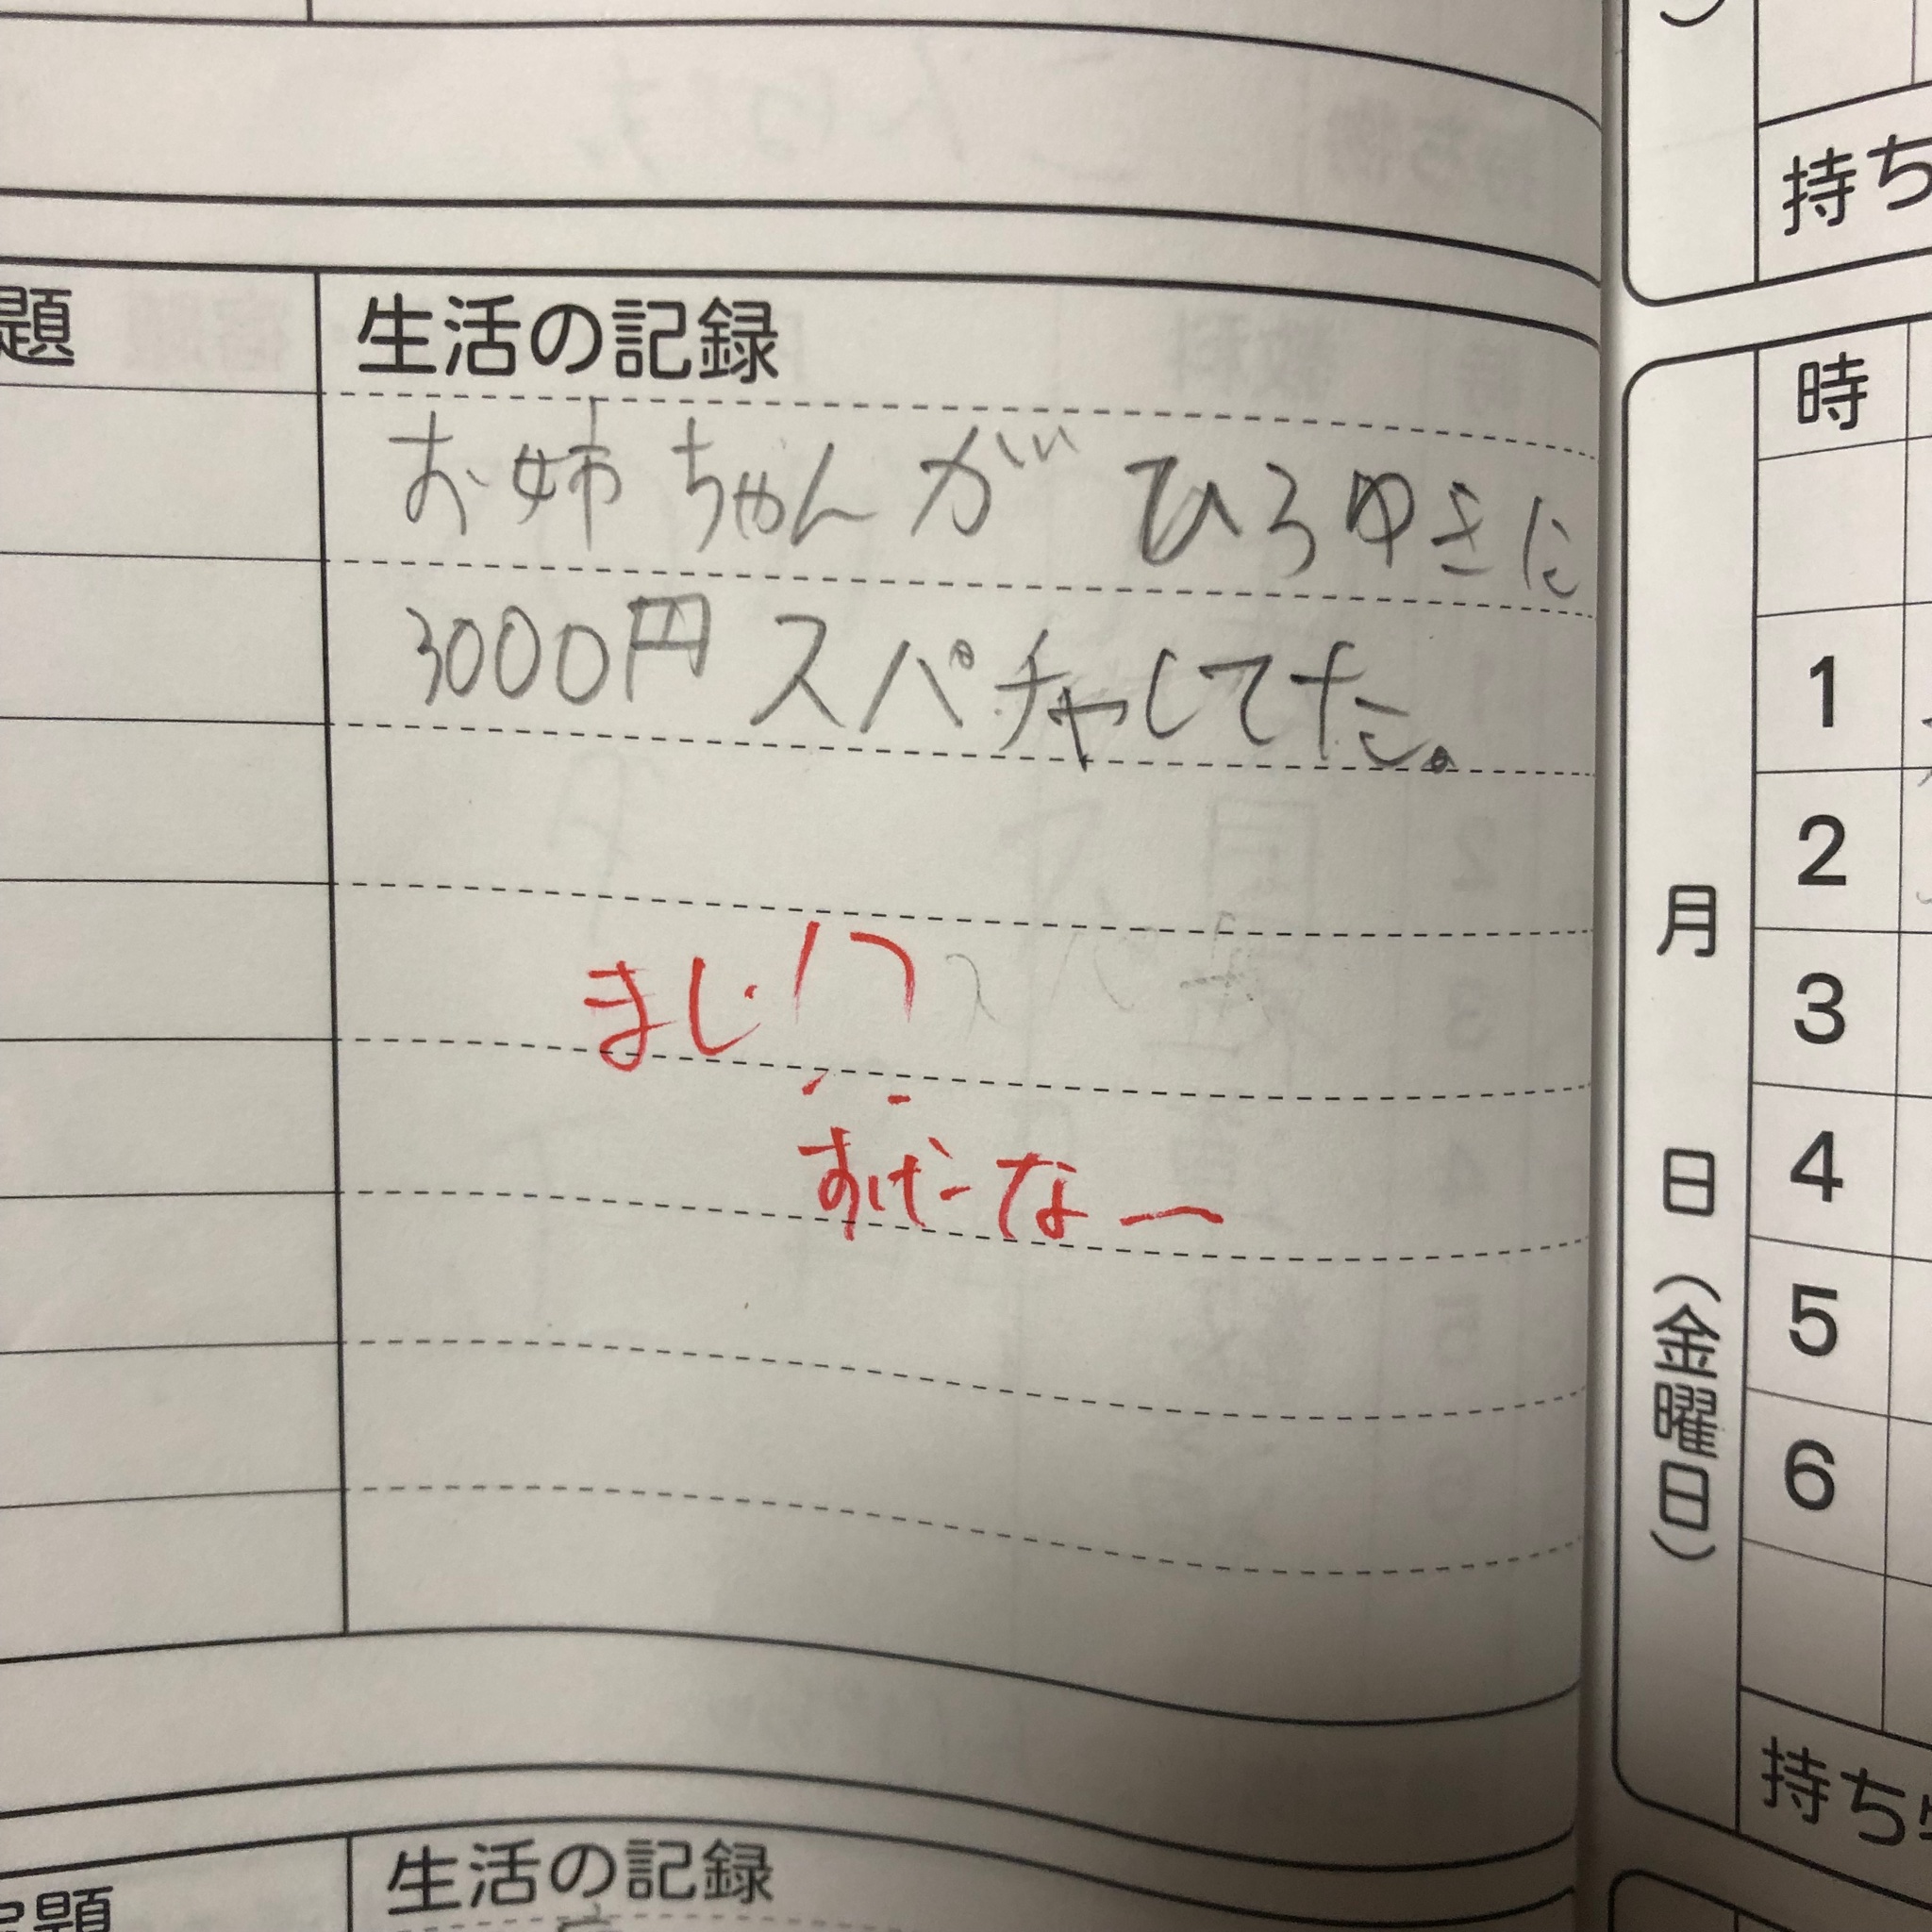 題
生活の記録
お姉ちゃんがひろゆきに
3000円スパチャしてた。
まじ!?
すげーなー
生活の記録
題
持ち
時
1
2
3
4
5
6
月 日(金曜日)
持ち